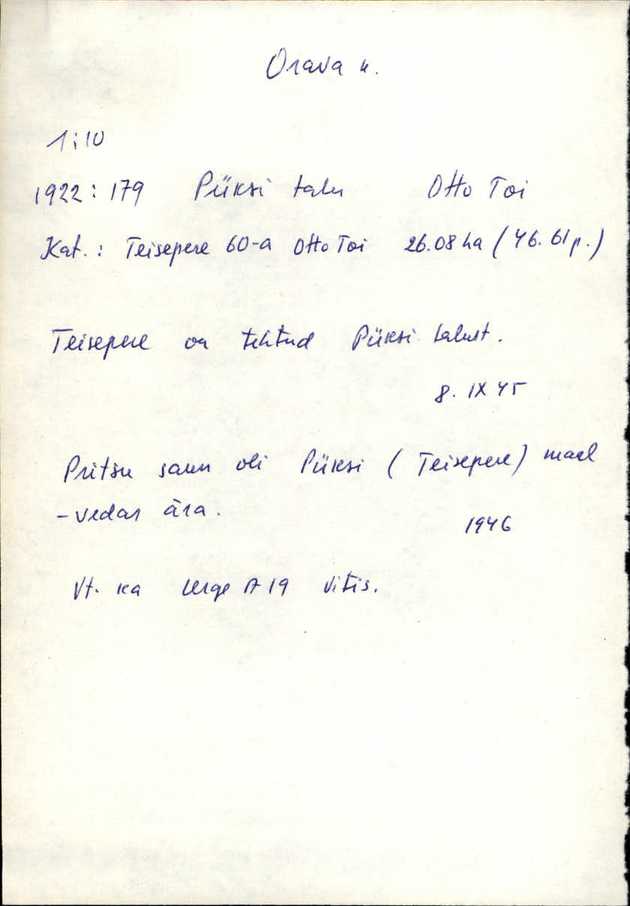 Orava k.
1:10
1922: 179 Püksi talu Otto Toi
Kat.: Teisepere 60-a Otto Toi 26.08 ha (46.61 p.)
Teisepere on tehtud Püksi talust.
8. IX 45
Pritsu saun oli Püksi (Teisepere) maal
- vedas ära.
1946
Vt. ka A 19